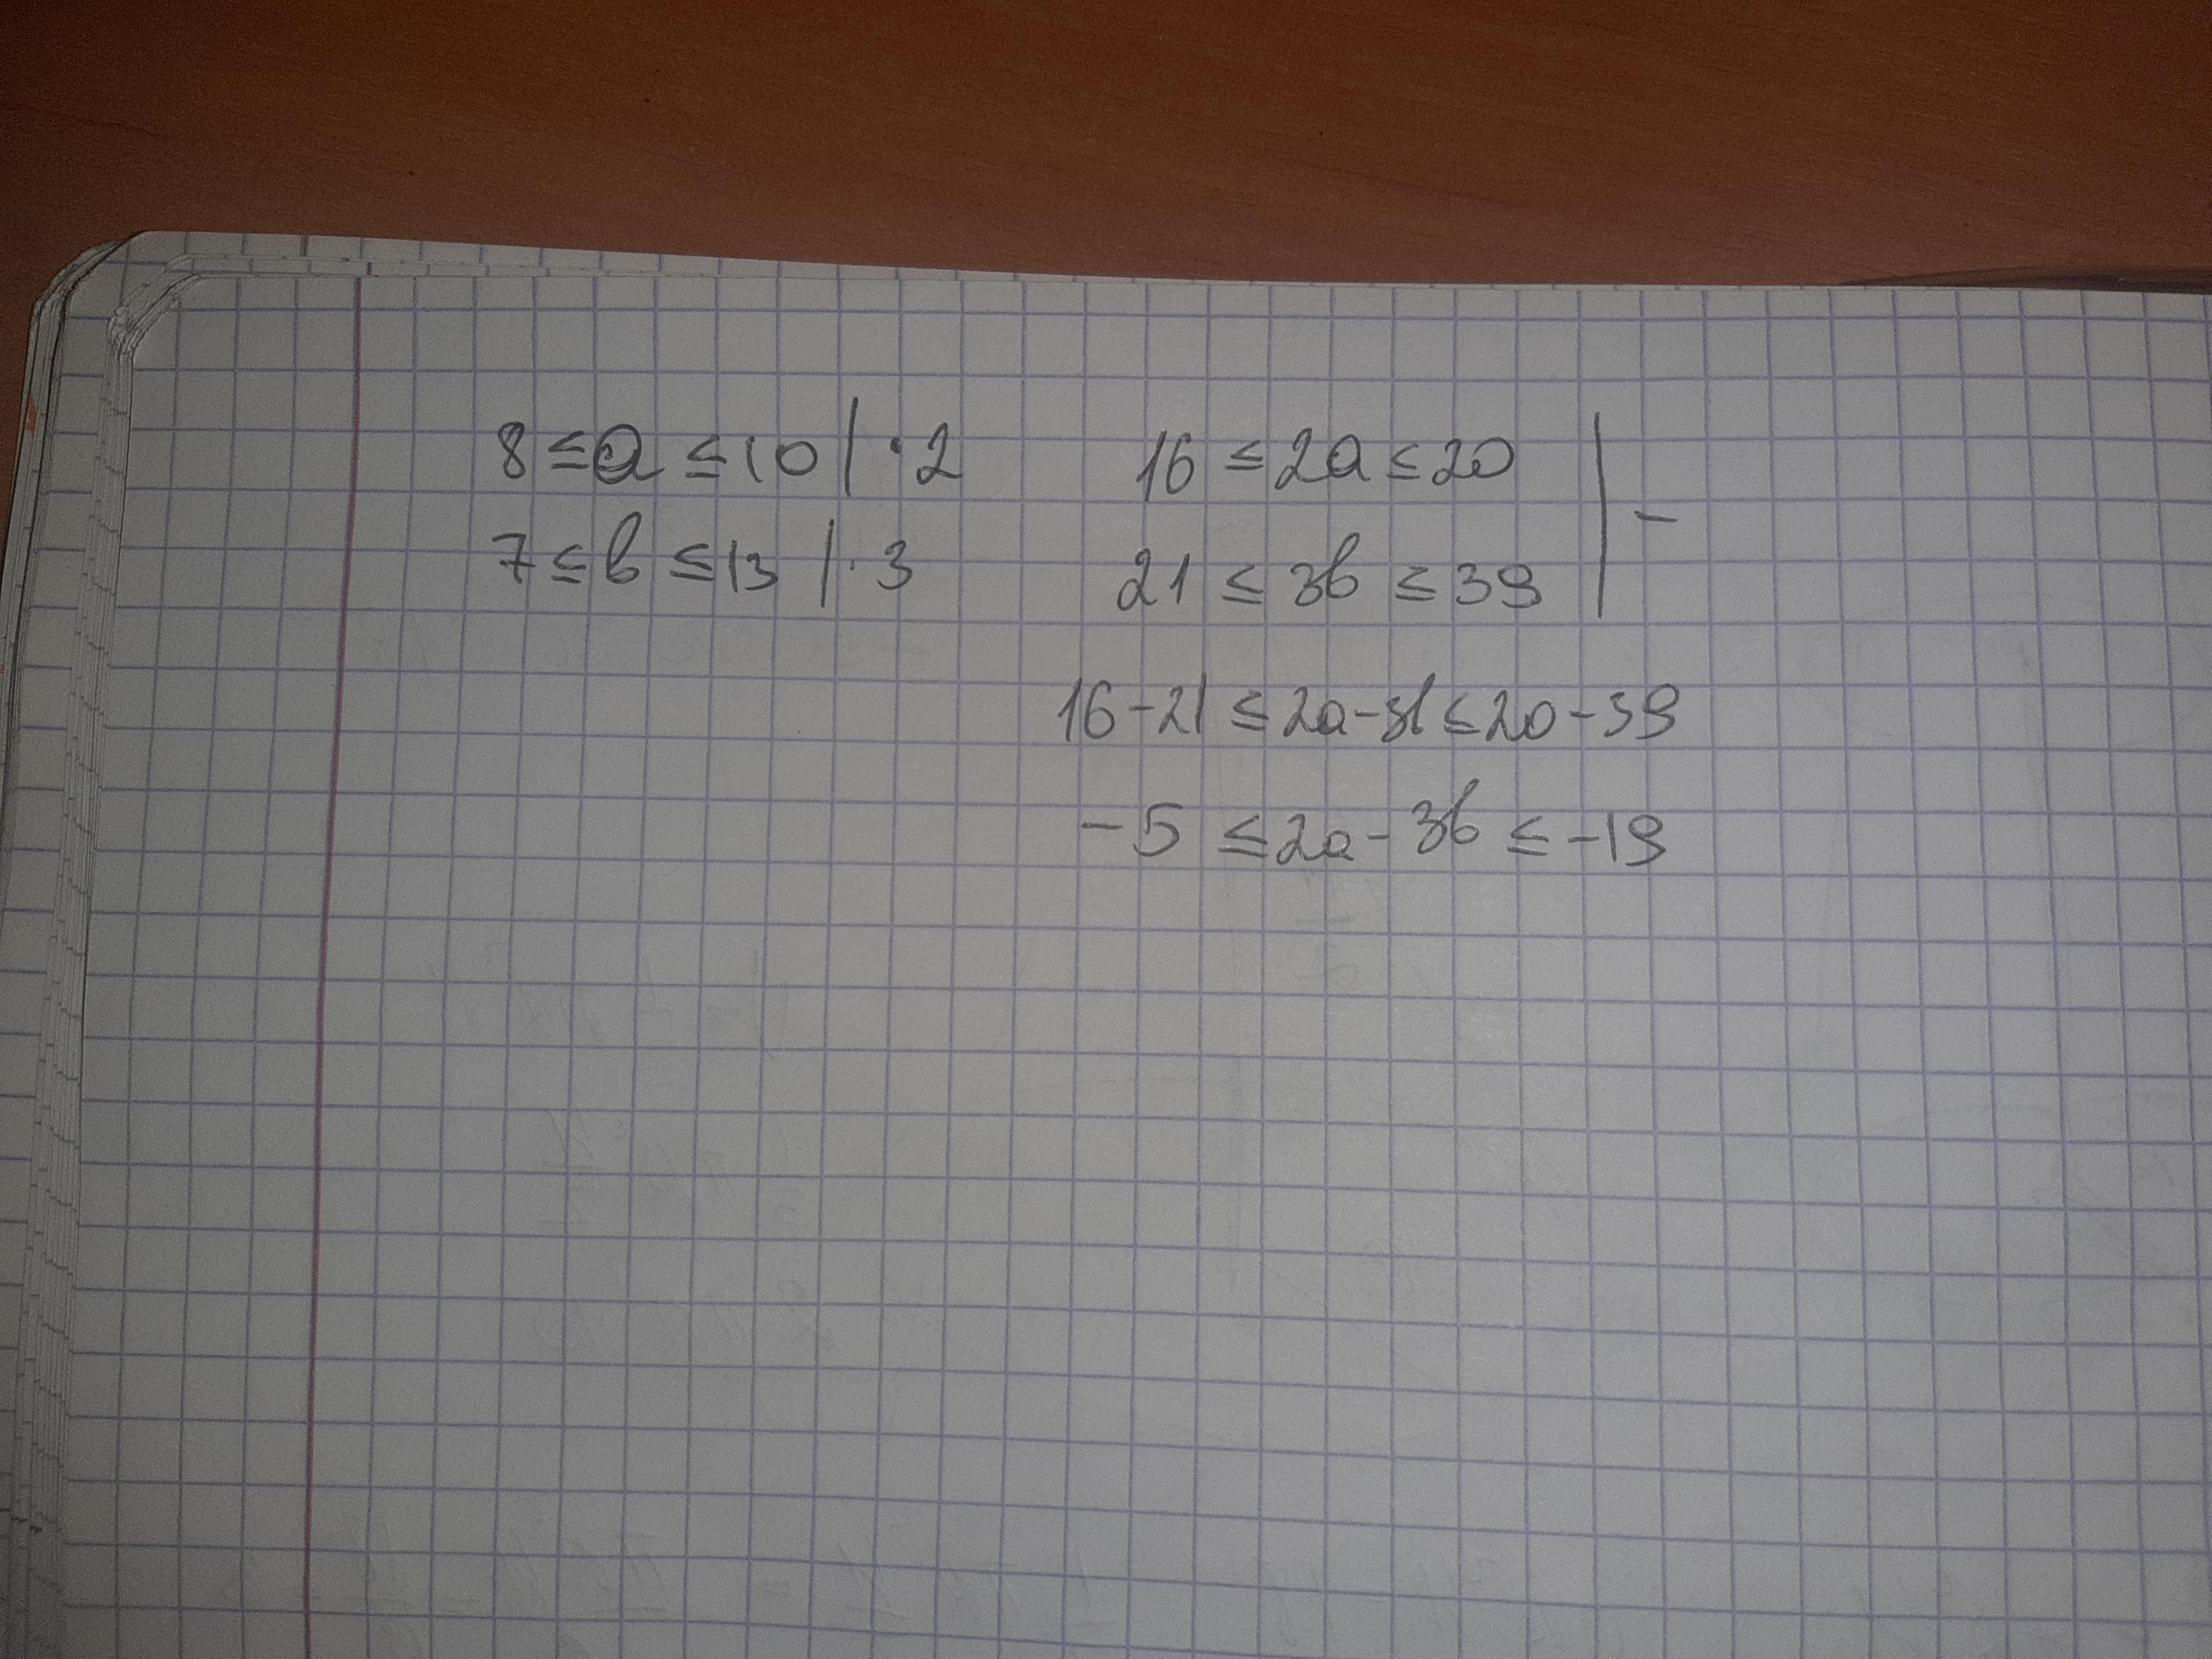 8 ≤ a ≤ 10 | · 2
7 ≤ b ≤ 13 | · 3
16 ≤ 2a ≤ 20 | –
21 ≤ 3b ≤ 39
16 – 21 ≤ 2a – 3b ≤ 20 – 39
– 5 ≤ 2a – 3b ≤ – 19